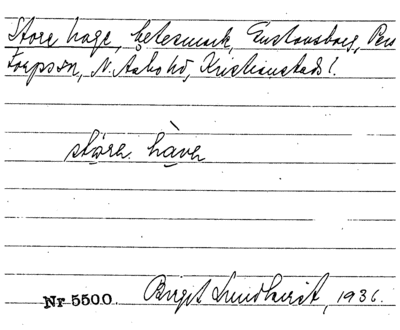 Store hage, betesmark, Gustavsborg, Per
Torpsson, N. Åsbo hd, Kristianstads l.
stǫrə hàvɐ
Nr 5500. Birgit Lundkvist, 1936.